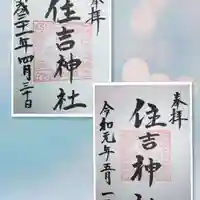 奉拝
住吉神社
成三十一年四月三十日
奉拝
住吉神
令和元年五月一